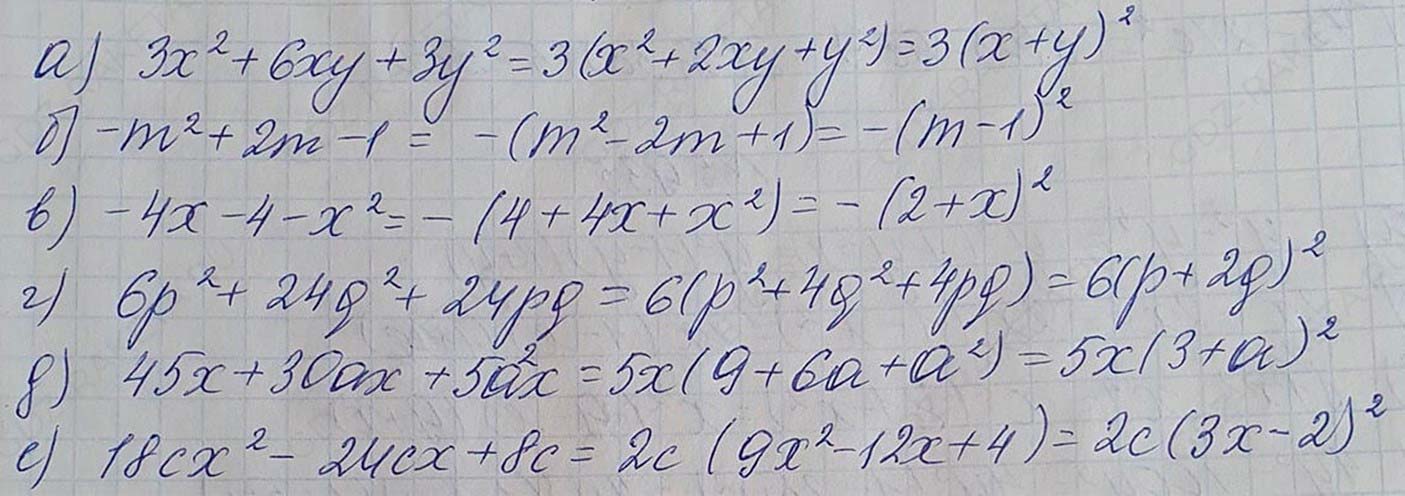 а) 3x² + 6xy + 3y² = 3(x² + 2xy + y²) = 3(x + y)²
б) -m² + 2m - 1 = -(m² - 2m + 1) = -(m - 1)²
в) -4x - 4 - x² = - (4 + 4x + x²) = - (2 + x)²
г) 6p² + 24q² + 24pq = 6(p² + 4q² + 4pq) = 6(p + 2q)²
д) 45x + 30ax + 5a²x = 5x(9 + 6a + a²) = 5x(3 + a)²
е) 18cx² - 24cx + 8c = 2c (9x² - 12x + 4) = 2c(3x - 2)²